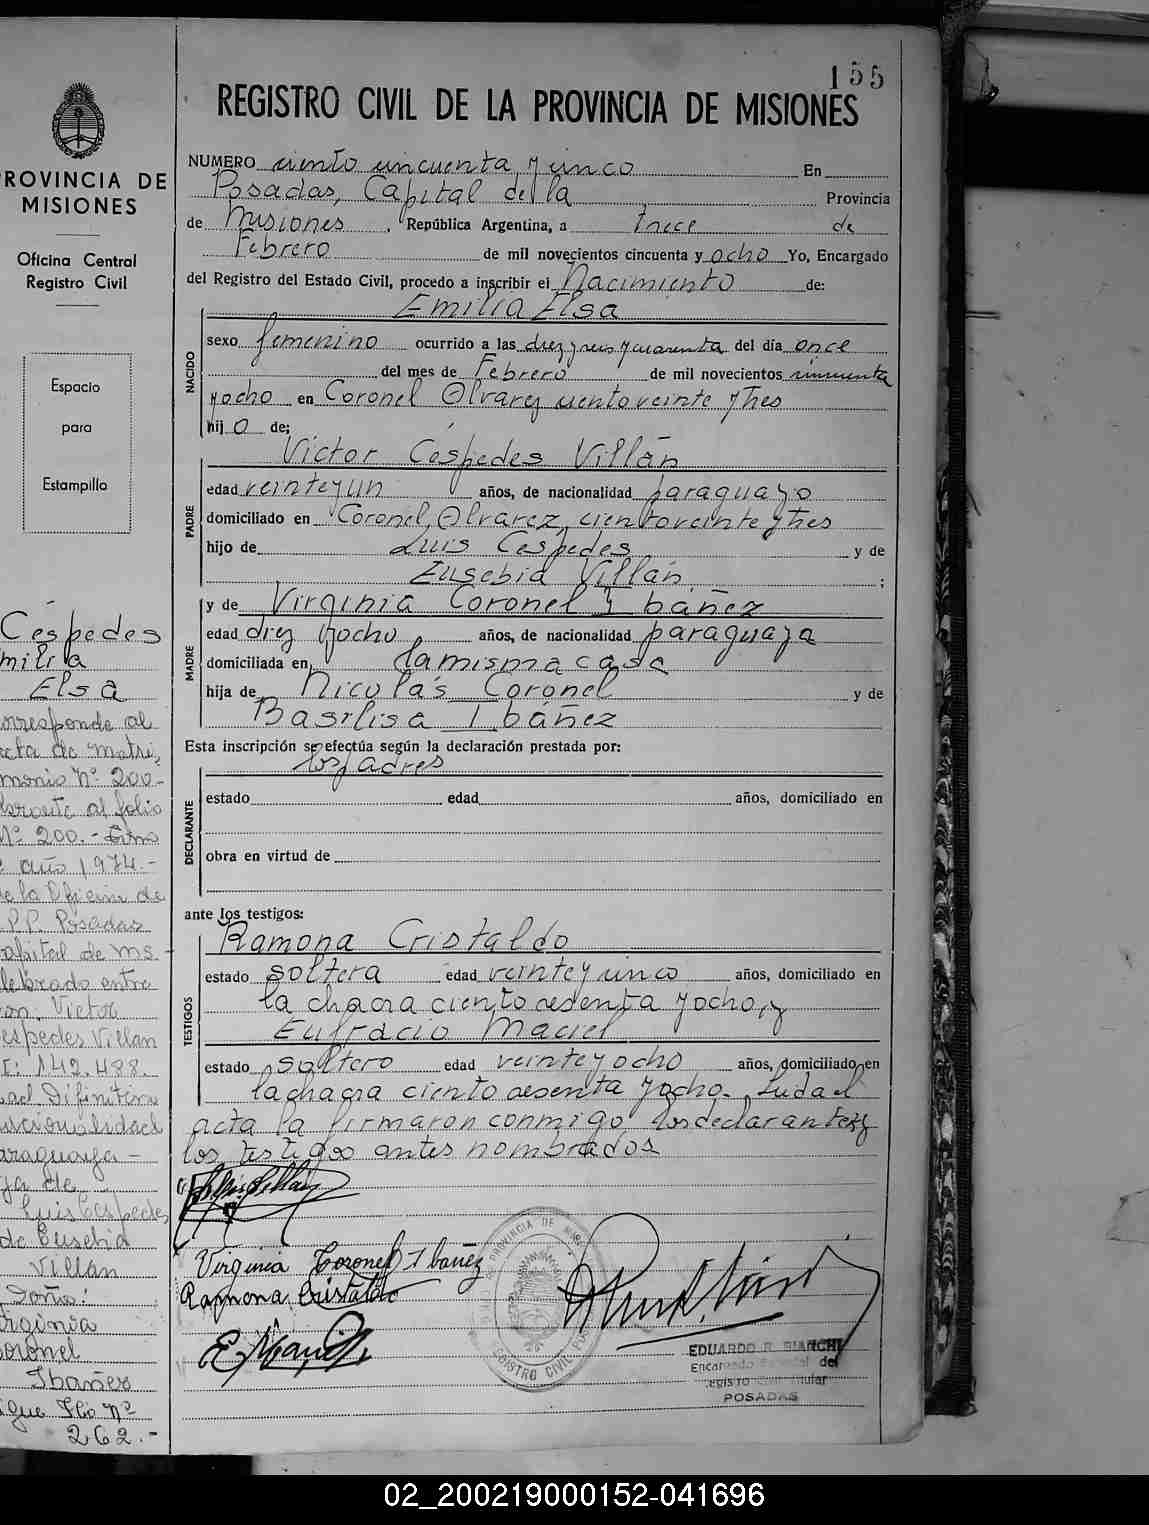 155
REGISTRO CIVIL DE LA PROVINCIA DE MISIONES
NUMERO ciento cincuenta y cinco En
Posadas, Capital de la Provincia
de Misiones, República Argentina, a trece de
Febrero de mil novecientos cincuenta y ocho Yo, Encargado
del Registro del Estado Civil, procedo a inscribir el Nacimiento de:
Emilia Elsa
NACIDO
sexo femenino ocurrido a las diez y seis y cuarenta del día once
del mes de Febrero de mil novecientos cincuenta
y ocho en Coronel Alvarez ciento veinte y tres
hijo de;
Víctor Céspedes Villán
PADRE
edad veinte y un años, de nacionalidad paraguayo
domiciliado en Coronel Alvarez, ciento veinte y tres
hijo de Luis Céspedes y de
Eusebia Villán ;
y de Virginia Coronel Ibáñez
MADRE
edad diez y ocho, años, de nacionalidad paraguaya
domiciliada en la misma casa
hija de Nicolás Coronel y de
Basilisa Ibáñez
Esta inscripción se efectúa según la declaración prestada por:
los padres
DECLARANTE
estado edad años, domiciliado en
obra en virtud de
ante los testigos:
TESTIGOS
Ramona Cristaldo
estado soltera edad veinte y cinco años, domiciliado en
la chacra ciento sesenta y ocho, y
Eufracio Maciel
estado soltero edad veinte y ocho años, domiciliado en
la chacra ciento sesenta y ocho. Leída el
acta la firmaron conmigo los declarantes y
los testigos antes nombrados
Virginia Coronel Ibañez
Ramona Cristaldo
EDUARDO R. BIANCHI
Encargado del
Registro Civil Titular
POSADAS
PROVINCIA DE
MISIONES
Oficina Central
Registro Civil
Espacio
para
Estampillo
Céspedes
Emilia
Elsa
Corresponde al
acta de matri
monio Nº 200-
al folio
Nº 200.- Tomo
año 1974.-
de la Oficina de
P.P. Posadas
Capital de Ms.
celebrado entre
Don: Victor
Cespedes Villan
142.488.
nacionalidad
paraguaya-
de
Luis Cespedes
de Eusebia
Villán
Doña:
Virginia
Coronel
Ibañez
sigue Flio Nº
262.-
02_200219000152-041696